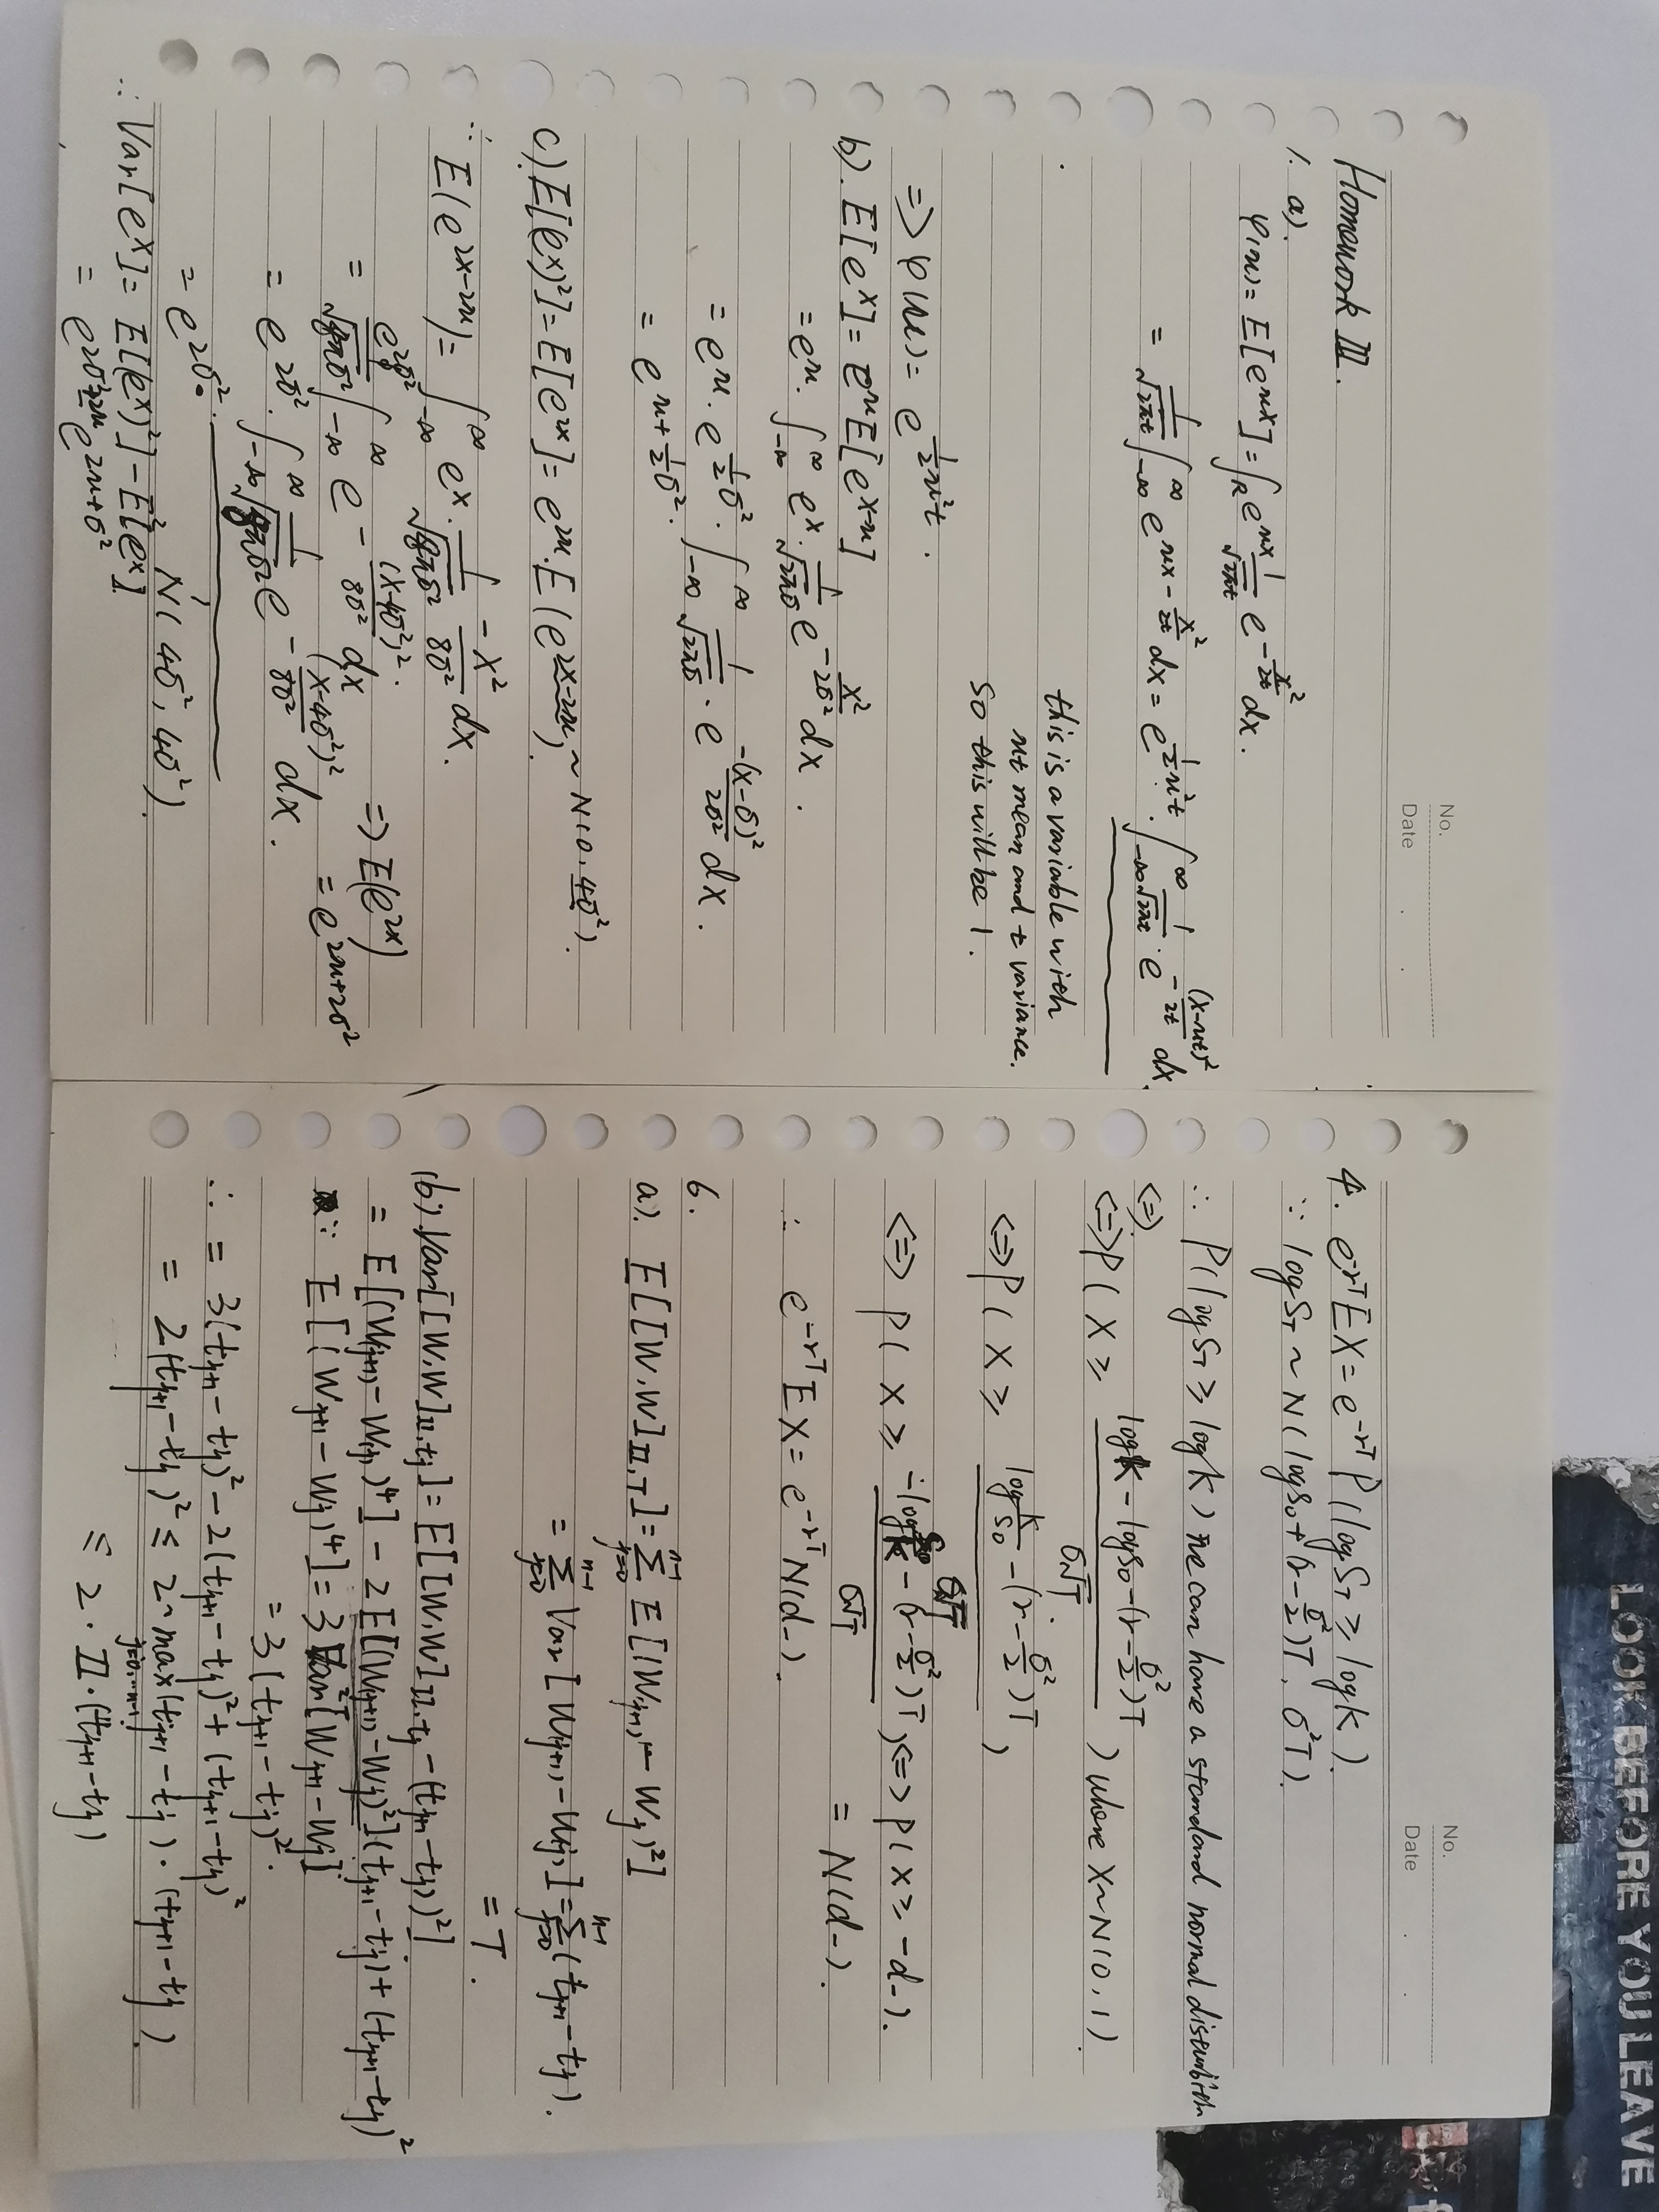 LOOK BEFORE YOU LEAVE
No.
Date
Homework III.
1. a).
φ(u) = E[e^{ux}] = ∫_R e^{ux} 1/√(2πt) e^{-x²/2t} dx.
= 1/√(2πt) ∫_{-∞}^{∞} e^{ux - x²/2t} dx = e^{½u²t} · ∫_{-∞}^{∞} 1/√(2πt) · e^{-(x-ut)²/2t} dx.
this is a variable with
ut mean and t variance.
So this will be 1.
=> φ(u) = e^{½u²t}.
b). E[e^x] = e^u E[e^{x-u}]
= e^u · ∫_{-∞}^{∞} e^x · 1/√(2πσ) e^{-x²/2σ²} dx.
= e^u · e^{½σ²} · ∫_{-∞}^{∞} 1/√(2πσ) · e^{-(x-σ)²/2σ²} dx.
= e^{u+½σ²}.
c). E[(e^x)²] = E[e^{2x}] = e^{2u} · E(e^{2x-2u}) ~ N(0, 4σ²).
∴ E(e^{2x-2u}) = ∫_{-∞}^{∞} e^x · 1/√(8πσ²) -x²/8σ² dx.
= e^{2σ²}/√(8πσ²) ∫_{-∞}^{∞} e^{-(x-4σ²)²/8σ²} dx => E(e^{2x})
= e^{2u+2σ²}
= e^{2σ²} · ∫_{-∞}^{∞} 1/√(8πσ²) e^{-(x-4σ²)²/8σ²} dx.
= e^{2σ²}.
N(4σ², 4σ²).
∴ Var[e^x] = E[(e^x)²] - E²[e^x].
= e^{2σ²+2u} - e^{2u+σ²}
No.
Date
4. e^{-rT} EX = e^{-rT} P(log S_T ≥ log K).
∵ log S_T ~ N(log S_0 + (r - σ²/2)T, σ²T).
∴ P(log S_T ≥ log K) we can have a standard normal distribution
<=>.
<=> P(X ≥ (log K - log S_0 - (r - σ²/2)T)/(σ√T)) where X ~ N(0, 1).
<=> P(X ≥ (log K/S_0 - (r - σ²/2)T)/(σ√T))
<=> P(X ≥ (-log S_0/K - (r - σ²/2)T)/(σ√T)) <=> P(X ≥ -d_-).
= N(d_-).
∴ e^{-rT} EX = e^{-rT} N(d_-).
6.
a). E[[W,W]_{Π,T}] = Σ_{j=0}^{n-1} E[(W_{(j+1)} - W_j)²]
= Σ_{j=0}^{n-1} Var[W_{(j+1)} - W_{(j)}] = Σ_{j=0}^{n-1} (t_{j+1} - t_j).
= T.
(b). Var[[W,W]_{Π,tj}] = E[[W,W]_{Π,tj} - (t_{j+1} - t_j))²].
= E[(W_{(j+1)} - W_{(j)})⁴] - 2E[(W_{(j+1)} - W_j)²](t_{j+1} - t_j) + (t_{j+1} - t_j)²
∵ E[(W_{j+1} - W_j)⁴] = 3 Var²[W_{j+1} - W_j]
= 3(t_{j+1} - t_j)².
∴ = 3(t_{j+1} - t_j)² - 2(t_{j+1} - t_j)² + (t_{j+1} - t_j)²
= 2(t_{j+1} - t_j)² ≤ 2· max_{j=0,...n-1} (t_{j+1} - t_j) · (t_{j+1} - t_j).
≤ 2 · Π · (t_{j+1} - t_j)